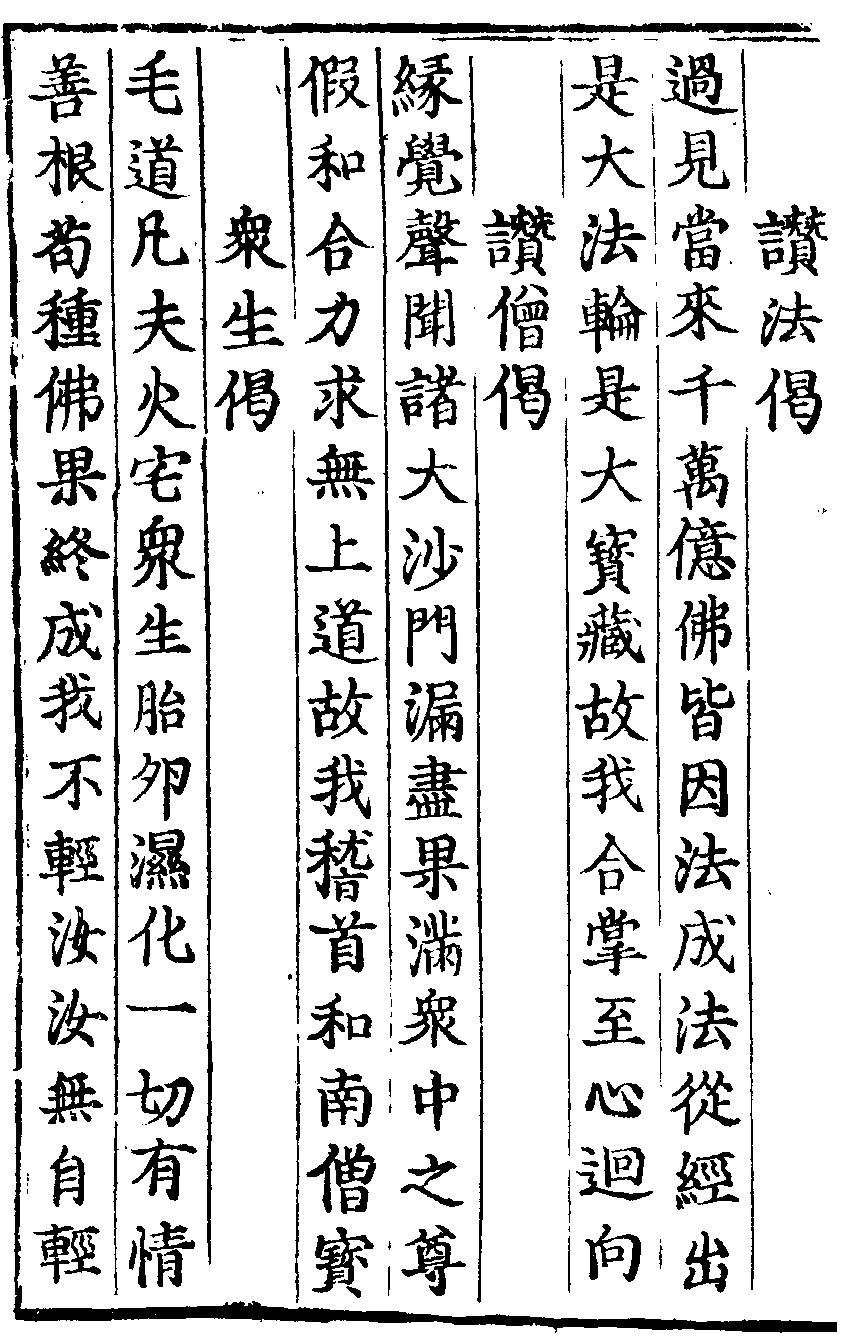 讚法偈
過見當來千萬億佛皆因法成法從經出
是大法輪是大寶藏故我合掌至心迴向
讚僧偈
緣覺聲聞諸大沙門漏盡果滿衆中之尊
假和合力求無上道故我稽首和南僧寶
衆生偈
毛道凡夫火宅衆生胎卵濕化一切有情
善根苟種佛果終成我不輕汝汝無自輕